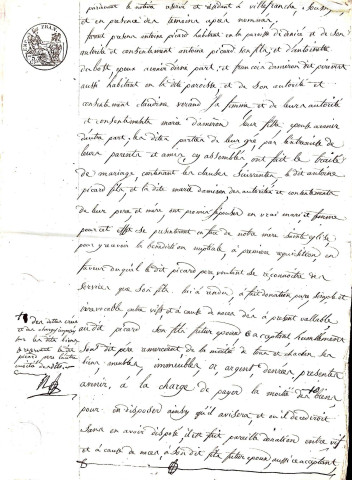 pardevant le notaire royal et résidant à villefranche soussigné
et en présence des témoins après nommés
furent présens antoine picard habitant en la paroisse de denicé et de son
autorité et consentement antoine picard son fils, et d'antoinette
dubost epoux avenir d'une part, et françois dameron dit
aussi habitant en la dite paroisse et de son autorité et
consentement claudine verand sa femme et de leurs autorité
et consentements marie daméron leur fille epouse avenir
d'autre part. les dites parties de leur gré par l'entremise de
leurs parents et amis, cy assemblés ont fait le traité
de mariage, contenant les clauses suivantes, le dit antoine
picard fils, et la dite marie dameron des autorités et consentements
de leur pere et mère, ont promis s'épouser en vrai mari, et femme
pour cet effet se présenteront en face de notre mère sainte église
pour y recevoir la bénédiction nuptiale, à première requisition en
faveur du quel le dit picard pere voulant se réconnoitre des
services que son fils lui à rendu, à fait donation pure simple et
irrévocable entre vifs et à cause de mort dès à présent vallable
au dit picard son fils futur époux acceptant humblement
son dit père remerciant de la moitié de tous et chacuns ses
biens meubles, immeubles or, argent denrées présents et
avenir, à la charge de payer la moitié des
pour en disposer ainsy qu'il avisera, et où il décederoit
sans en avoir disposé il en fait pareille donation entre vifs
et à cause de mort à son dit fils futur époux aussi acceptant,
des dettes
et des charges
sur les dits biens
picard pere